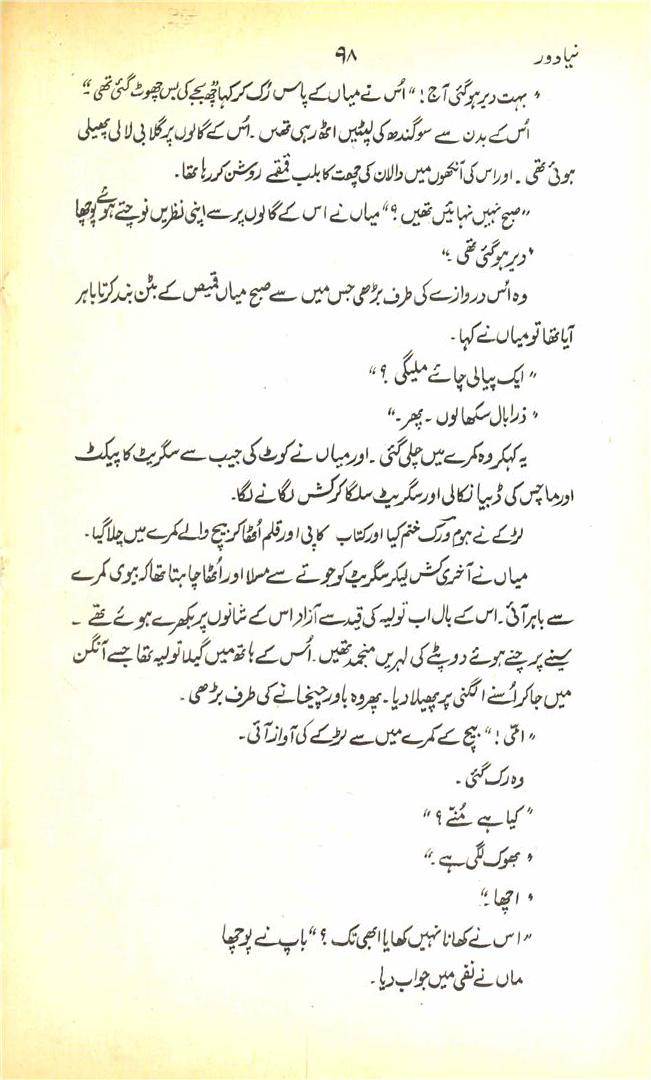 نیا دور ۹۸
" بہت دیر ہوگئی آج! " اُس نے میاں کے پاس رُک کر کہا چھ بجے کی بس چھوٹ گئی تھی۔"
اُس کے بدن سے سوگندھ کی لپٹیں اٹھ رہی تھیں۔ اُس کے گالوں پر گلابی لالی پھیلی
ہوئی تھی۔ اور اس کی آنکھوں میں دالان کی چھت کا بلب قمقمے روشن کر رہا تھا۔
"صبح نہیں نہائیں تھیں؟" میاں نے اس کے گالوں پر سے اپنی نظریں نوچتے ہوئے پوچھا
"دیر ہوگئی تھی۔"
وہ اُس دروازے کی طرف بڑھی جس میں سے صبح میاں قمیص کے بٹن بند کرتا باہر
آیا تھا تو میاں نے کہا۔
"ایک پیالی چائے ملیگی ؟"
"ذرا بال سکھالوں۔ پھر۔"
یہ کہکر وہ کمرے میں چلی گئی۔ اور میاں نے کوٹ کی جیب سے سگریٹ کا پیکٹ
اور ماچس کی ڈبیا نکالی اور سگریٹ سلگا کر کش لگانے لگا۔
لڑکے نے ہوم ورک ختم کیا اور کتاب کاپی اور قلم اُٹھا کر بیچ والے کمرے میں چلا گیا۔
میاں نے آخری کش لیکر سگریٹ کو جوتے سے مسلا اور اُٹھا چاہتا تھا کہ بیوی کمرے
سے باہر آئی۔ اس کے بال اب تولیہ کی قید سے آزاد اس کے شانوں پر بکھرے ہوئے تھے۔
سینے پر چنے ہوئے دوپٹے کی لہریں منجمد تھیں۔ اُس کے ہاتھ میں گیلا تولیہ تھا جسے آنگن
میں جا کر اُسنے الگنی پر پھیلا دیا۔ پھر وہ باورچیخانے کی طرف بڑھی۔
"امّی!" بیچ کے کمرے میں سے لڑکے کی آواز آئی۔
وہ رک گئی۔
"کیا ہے مُنّے ؟"
"بھوک لگی ہے۔"
"اچھا۔"
"اس نے کھانا نہیں کھایا ابھی تک ؟" باپ نے پوچھا
ماں نے نفی میں جواب دیا۔